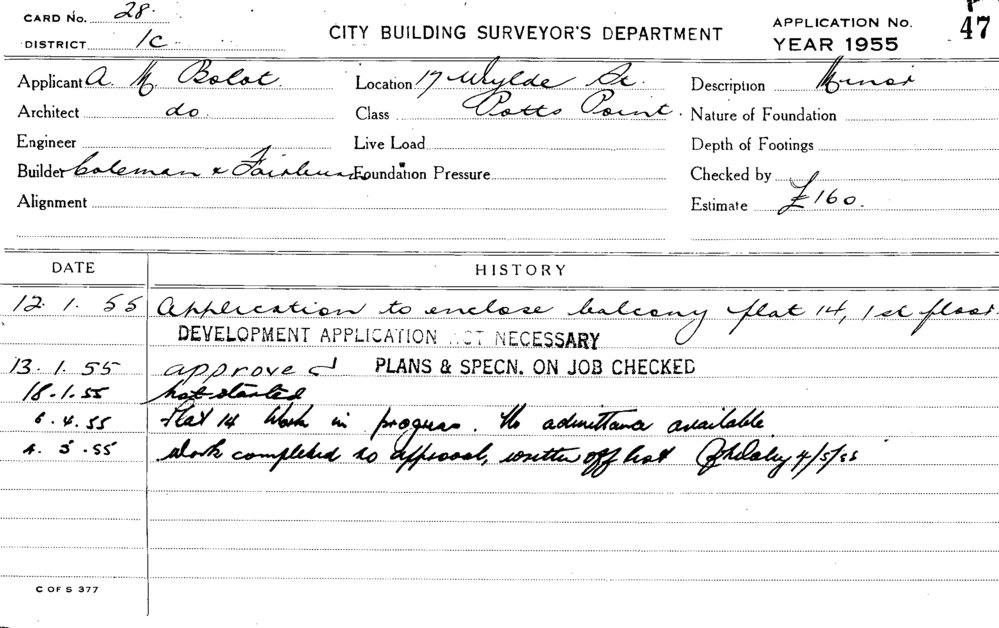 CARD No. 28.
DISTRICT 1C
CITY BUILDING SURVEYOR'S DEPARTMENT
APPLICATION No. 47
YEAR 1955
Applicant A. M. Bolot
Location 17 Wylde St.
Description Minor
Architect do
Class Potts Point.
Nature of Foundation
Engineer
Live Load
Depth of Footings
Builder Coleman &
Foundation Pressure
Checked by
Alignment
Estimate £160.
DATE
HISTORY
12. 1. 55 Application to enclose balcony flat 14, 1st floor.
DEVELOPMENT APPLICATION NOT NECESSARY
13. 1. 55 approved PLANS & SPECN. ON JOB CHECKED
18.1.55 Not started
6.4.55 Flat 14 Work in progress. No admittance available
4.5.55 Work completed to approval, written off list 4/5/55
C OF S 377